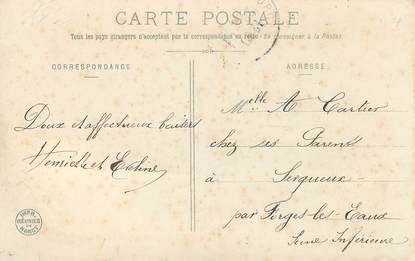 CARTE POSTALE
Tous les pays étrangers n'acceptent pas la correspondance au recto (Se renseigner à la Poste).
CORRESPONDANCE
ADRESSE
Doux et affectueux baisers
Henriette et
Melle A Cartier
chez ses Parents
à Serqueux
par Forges-les-Eaux
Seine Inférieure
IMPR.
RÉUNIES
DE
NANCY